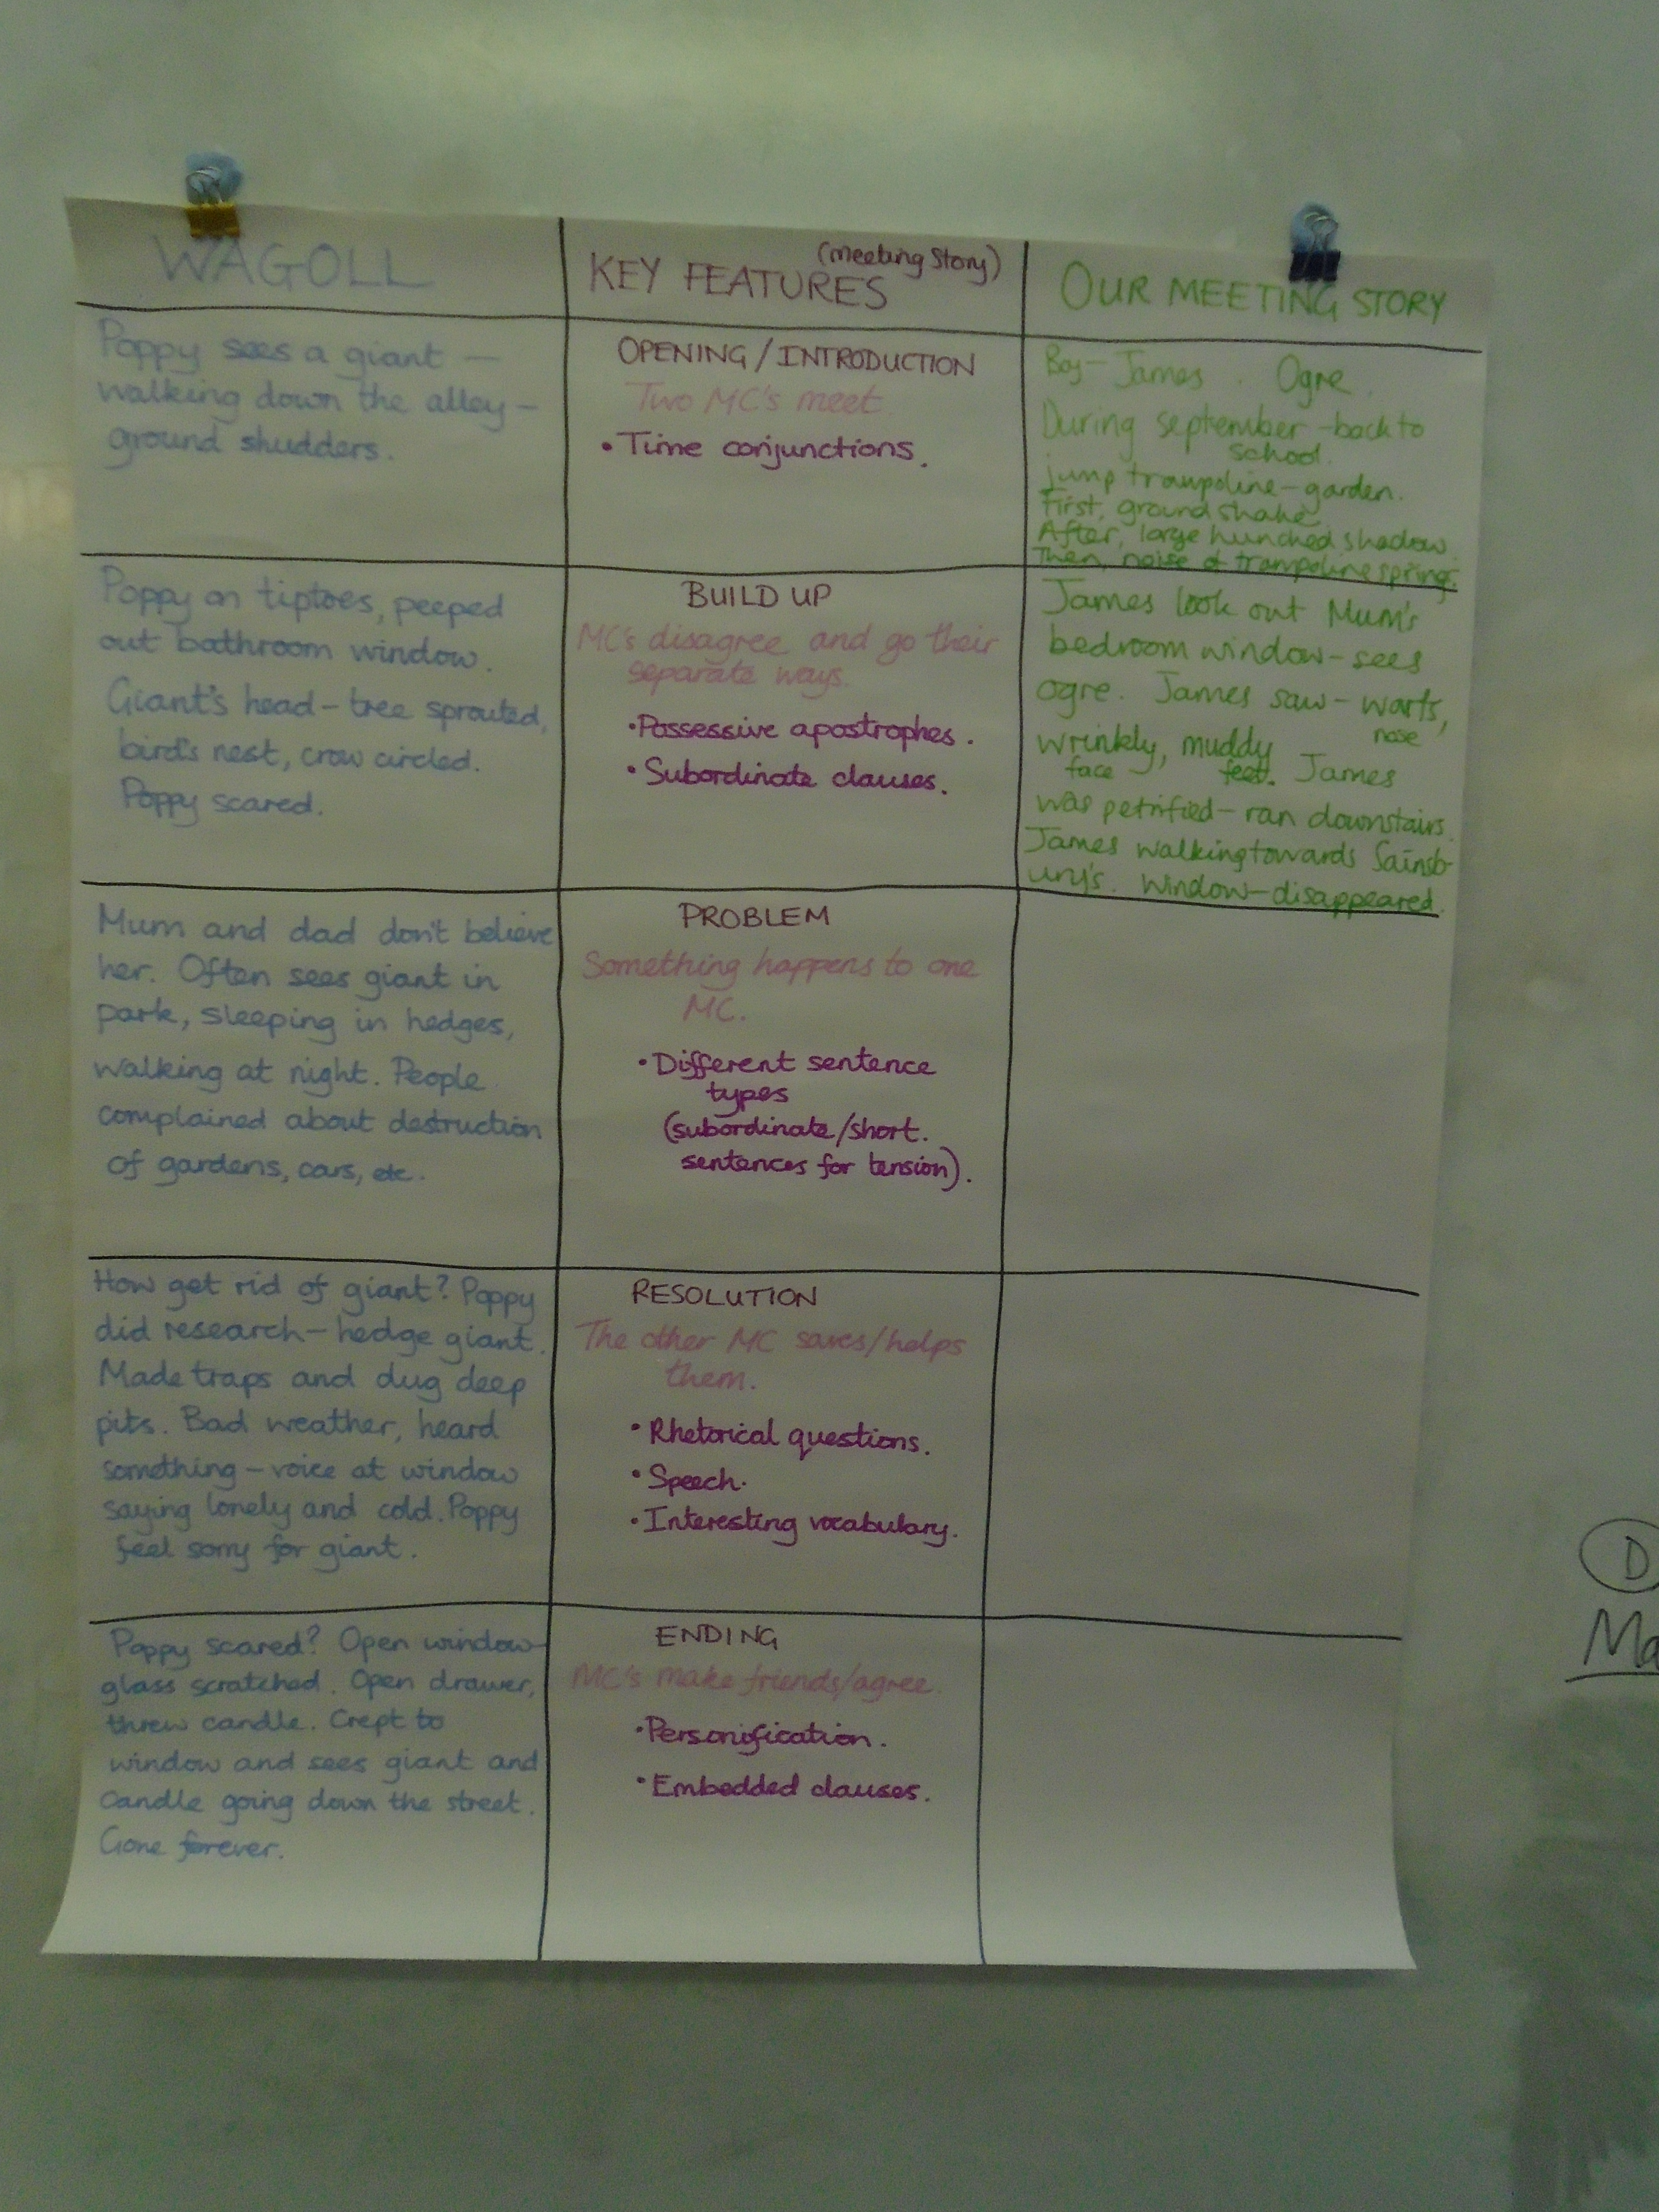 WAGOLL
Poppy sees a giant —
walking down the alley –
ground shudders.
Poppy on tiptoes, peeped
out bathroom window.
Giant's head – tree sprouted,
bird's nest, crow circled.
Poppy scared.
Mum and dad don't believe
her. Often sees giant in
park, sleeping in hedges,
walking at night. People
complained about destruction
of gardens, cars, etc.
How get rid of giant? Poppy
did research – hedge giant.
Made traps and dug deep
pits. Bad weather, heard
something – voice at window
saying lonely and cold. Poppy
feel sorry for giant.
Poppy scared? Open window –
glass scratched. Open drawer,
threw candle. Crept to
window and sees giant and
candle going down the street.
Gone forever.
(meeting story)
KEY FEATURES
OPENING / INTRODUCTION
Two MC's meet
• Time conjunctions.
BUILD UP
MC's disagree and go their
separate ways.
• Possessive apostrophes.
• Subordinate clauses.
PROBLEM
Something happens to one
MC.
• Different sentence
types
(subordinate/short.
sentences for tension).
RESOLUTION
The other MC saves/helps
them.
• Rhetorical questions.
• Speech.
• Interesting vocabulary.
ENDING
MC's make friends/agree.
• Personification.
• Embedded clauses.
OUR MEETING STORY
Boy – James . Ogre.
During september – back to
school.
jump trampoline – garden.
First, ground shake
After, large hunched shadow.
Then, noise of trampoline springs.
James look out Mum's
bedroom window – sees
ogre. James saw – warts,
nose
wrinkly, muddy
face feet. James
was petrified – ran downstairs.
James walking towards Sainsb-
ury's. Window – disappeared.
D
Ma